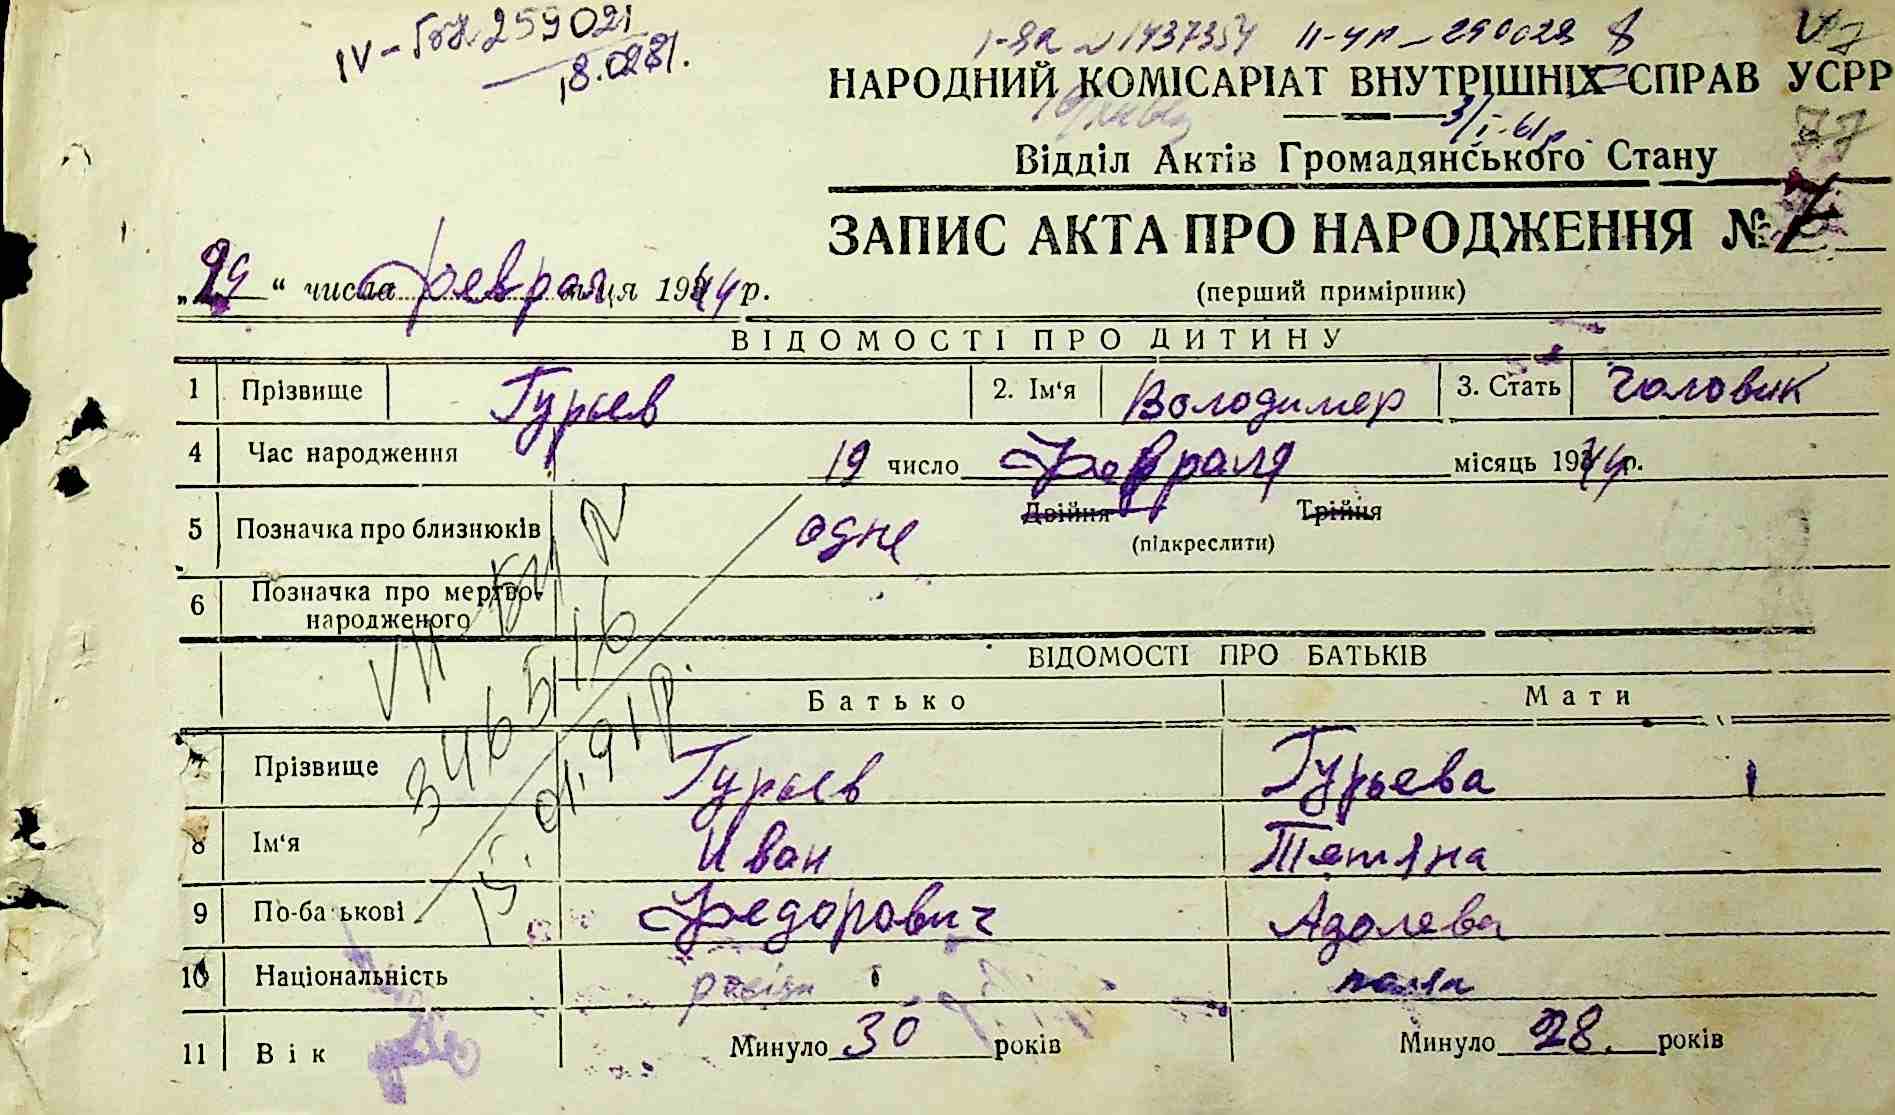 259021
НАРОДНИЙ КОМІСАРІАТ ВНУТРІШНІХ СПРАВ УСРР
3/I-61р.
Відділ Актів Громадянського Стану
ЗАПИС АКТА ПРО НАРОДЖЕННЯ № 7
„29“ числа февраля м-ця 1944 р.
(перший примірник)
ВІДОМОСТІ ПРО ДИТИНУ
1 Прізвище Гурьев 2. Ім‘я Володимер 3. Стать Чоловик
4 Час народження 19 число Февраля місяць 1944 р.
5 Позначка про близнюків одне Двійня Трійня
(підкреслити)
6 Позначка про мертво-
народженого
VII БМ N
346516
15.01.91р.
ВІДОМОСТІ ПРО БАТЬКІВ
Батько Мати
7 Прізвище Гурьев Гурьева
8 Ім‘я Иван Тетяна
9 По-батькові Федорович
10 Національність
11 Вік Минуло 30 років Минуло 28. років